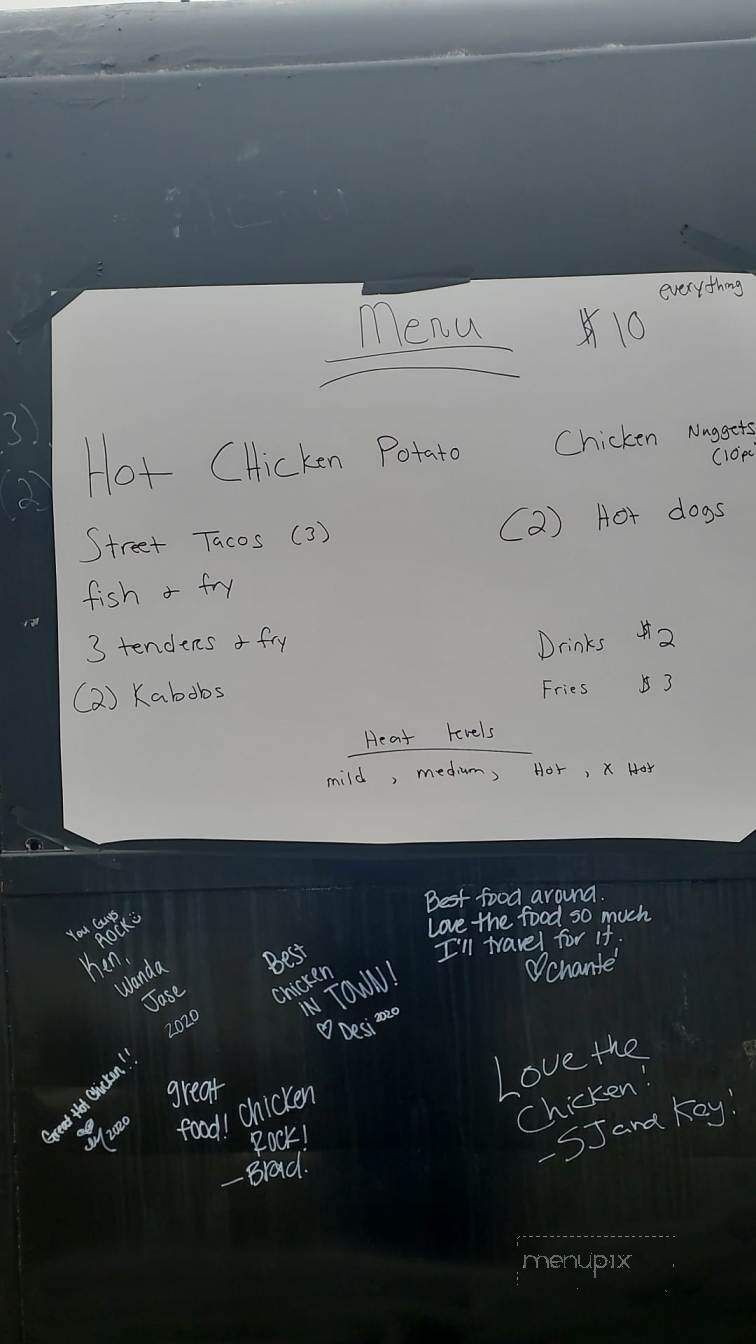 MENU
everything
Menu $10
Hot CHicken Potato
Chicken Nuggets
(10pc
Street Tacos (3)
(2) Hot dogs
fish & fry
3 tenders & fry
(2) Kabobs
Drinks $2
Fries $3
Heat levels
mild, medium, Hot, x Hot
3)
(2)
You Guys
ROCK
Ken,
Wanda
Jase
2020
Best
Chicken
IN TOWN!
♡ Desi 2020
Best food around.
Love the food so much
I'll travel for it.
♡Chante'
Great Hot Chicken!!
2020
great
food!
Chicken
ROCK!
-Brad.
Love the
Chicken!
-SJ and Key!
menupix